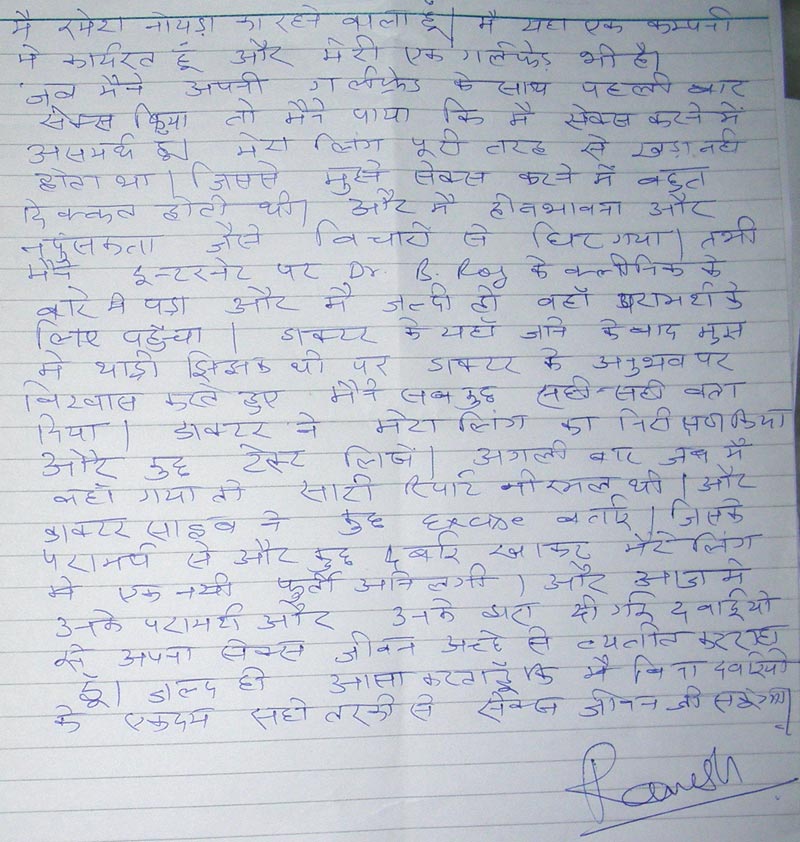 मै रमेश नोयडा का रहने वाला हूँ। मै यहा एक कम्पनी
मे कार्यरत हूँ और मेरी एक गर्लफ्रेंड भी है।
जब मैने अपनी गर्लफ्रेंड के साथ पहली बार
सेक्स किया तो मैने पाया कि मै सेक्स करने में
असमर्थ हूं। मेरा लिंग पूरी तरह से खड़ा नही
होता था। जिससे मुझे सेक्स करने में बहुत
दिक्कत होती थी। और मै हीनभावना और
नपुंसकता जैसे विचारों से घिर गया। तभी
मैने इन्टरनेट पर Dr. B. Roy के क्लीनिक के
बारे मे पड़ा और मै जल्दी ही वहाँ परामर्श के
लिए पहुँचा। डाक्टर के यहाँ जाने के बाद मुझ
मे थोड़ी झिझक थी पर डाक्टर के अनुभव पर
विश्वास करते हुए मैने सब कुछ सही-सही बता
दिया। डाक्टर ने मेरा लिंग का निरीक्षण किया
और कुछ टेस्ट लिखे। अगली बार जब मै
वहाँ गया तो सारी रिपोर्ट नोरमल थी। और
डाक्टर साहब ने कुछ बताई। जिसके
परामर्ष से और कुछ दवाई खाकर मेरे लिंग
मे एक नयी फुर्ती आने लगी। और आज मे
उनके परामर्श और उनके द्वारा दी गई दवाईयो
से अपना सेक्स जीवन अच्छे से व्यतीत कर रहा
हूँ। जल्द ही आसा करता हूँ कि मै बिना दवाईयो
के एकदम सही तरकी से सेक्स जीवन जी सकूंगा।
Ramesh